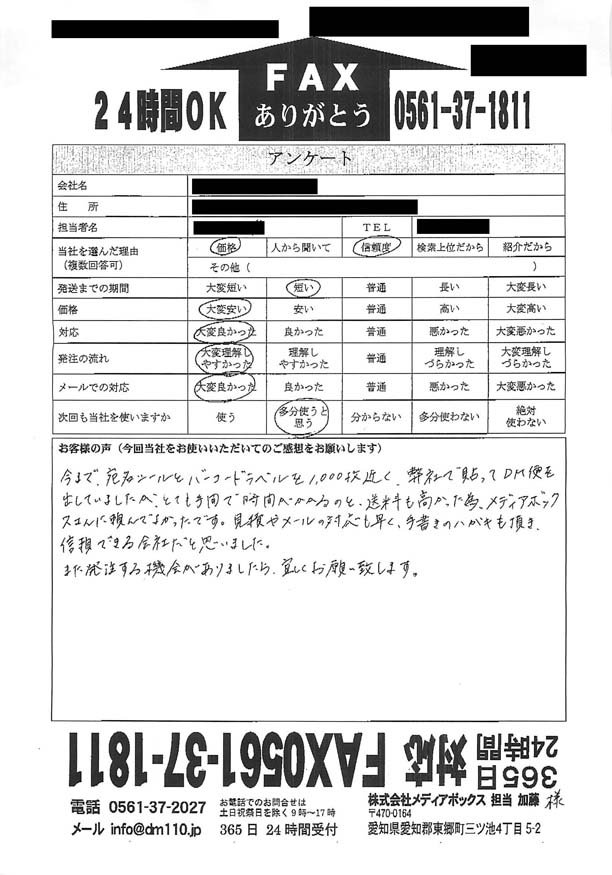 FAX
24時間OK ありがとう 0561-37-1811
アンケート
会社名
住 所
担当者名 TEL
当社を選んだ理由 価格 人から聞いて 信頼度 検索上位だから 紹介だから
(複数回答可) その他( )
発送までの期間 大変短い 短い 普通 長い 大変長い
価格 大変安い 安い 普通 高い 大変高い
対応 大変良かった 良かった 普通 悪かった 大変悪かった
発注の流れ 大変理解しやすかった 理解しやすかった 普通 理解しづらかった 大変理解しづらかった
メールでの対応 大変良かった 良かった 普通 悪かった 大変悪かった
次回も当社を使いますか 使う 多分使うと思う 分からない 多分使わない 絶対使わない
お客様の声(今回当社をお使いいただいてのご感想をお願いします)
今まで、宛名シールとバーコードラベルを1,000枚近く、弊社で貼ってDM便を
出していましたが、とても手間で時間がかかるのと、送料も高かった為、メディアボック
スさんに頼んでよかったです。見積やメールの対応も早く、手書きのハガキも頂き、
信頼できる会社だと思いました。
また発注する機会がありましたら、宜しくお願い致します。
365日
24時間
対応 FAX0561-37-1811
電話 0561-37-2027 お電話でのお問合せは 株式会社メディアボックス 担当 加藤 様
土日祝祭日を除く9時~17時 〒470-0164
メール info@dm110.jp 365日24時間受付 愛知県愛知郡東郷町三ツ池4丁目5-2